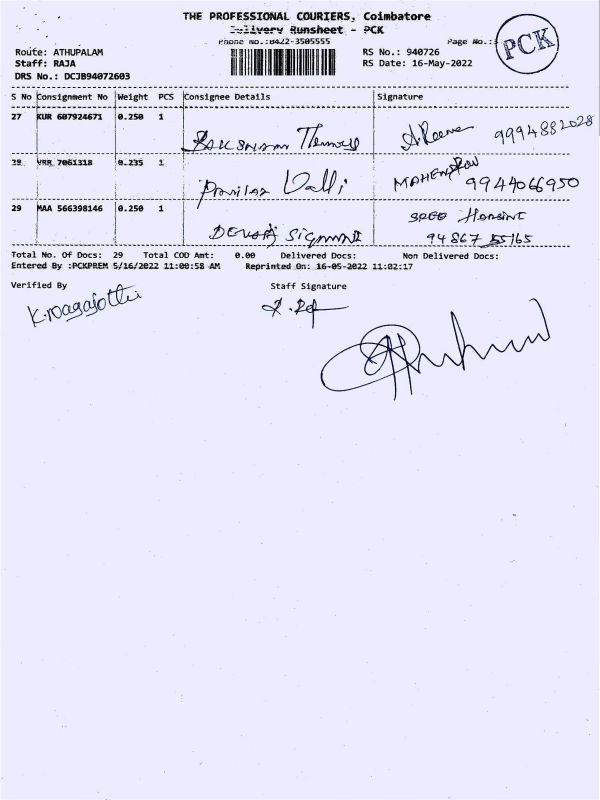 THE PROFESSIONAL COURIERS, Coimbatore
Delivery Runsheet - PCK
Phone No.:0422-3505555 Page No.:3
PCK
Route: ATHUPALAM RS No.: 940726
Staff: RAJA RS Date: 16-May-2022
DRS No.: DCJB94072603
S No Consignment No Weight PCS Consignee Details Signature
27 KUR 607924671 0.250 1
9994882028
28 VRR 7061318 0.235 1 Valli MAHENDRAN
9944066950
29 MAA 566398146 0.250 1
94867 55165
Total No. Of Docs: 29 Total COD Amt: 0.00 Delivered Docs: Non Delivered Docs:
Entered By :PCKPREM 5/16/2022 11:00:58 AM Reprinted On: 16-05-2022 11:02:17
Verified By Staff Signature
K.Nagajothi